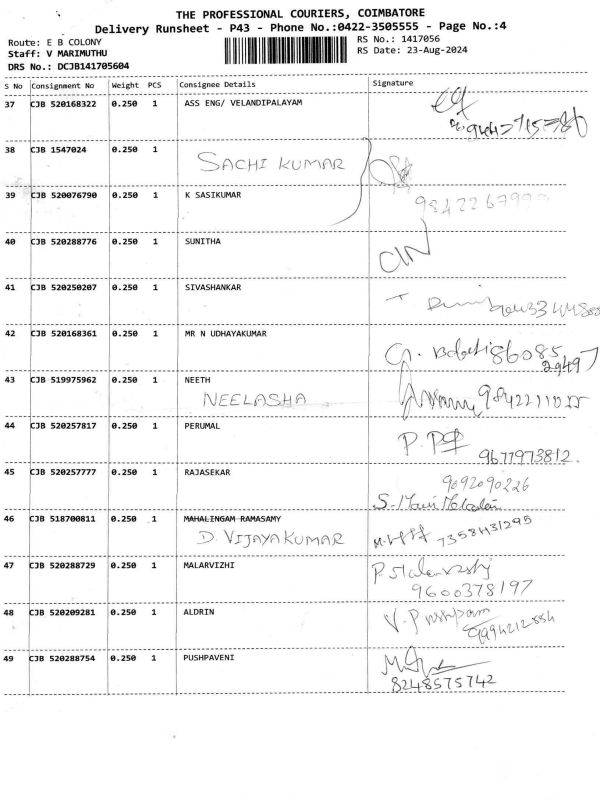 THE PROFESSIONAL COURIERS, COIMBATORE
Delivery Runsheet - P43 - Phone No.:0422-3505555 - Page No.:4
Route: E B COLONY
RS No.: 1417056
Staff: V MARIMUTHU
RS Date: 23-Aug-2024
DRS No.: DCJB141705604
S No Consignment No Weight PCS Consignee Details Signature
37 CJB 520168322 0.250 1 ASS ENG/ VELANDIPALAYAM
38 CJB 1547024 0.250 1
SACHI KUMAR
39 CJB 520076790 0.250 1 K SASIKUMAR
40 CJB 520288776 0.250 1 SUNITHA
41 CJB 520250207 0.250 1 SIVASHANKAR
42 CJB 520168361 0.250 1 MR N UDHAYAKUMAR
86085
29497
43 CJB 519975962 0.250 1 NEETH
NEELASHA
44 CJB 520257817 0.250 1 PERUMAL
9677973812
45 CJB 520257777 0.250 1 RAJASEKAR
9092090226
46 CJB 518700811 0.250 1 MAHALINGAM RAMASAMY
D. VIJAYAKUMAR 7358431295
47 CJB 520288729 0.250 1 MALARVIZHI
9600378197
48 CJB 520209281 0.250 1 ALDRIN
V. Pushpam
9994212884
49 CJB 520288754 0.250 1 PUSHPAVENI
8248575742